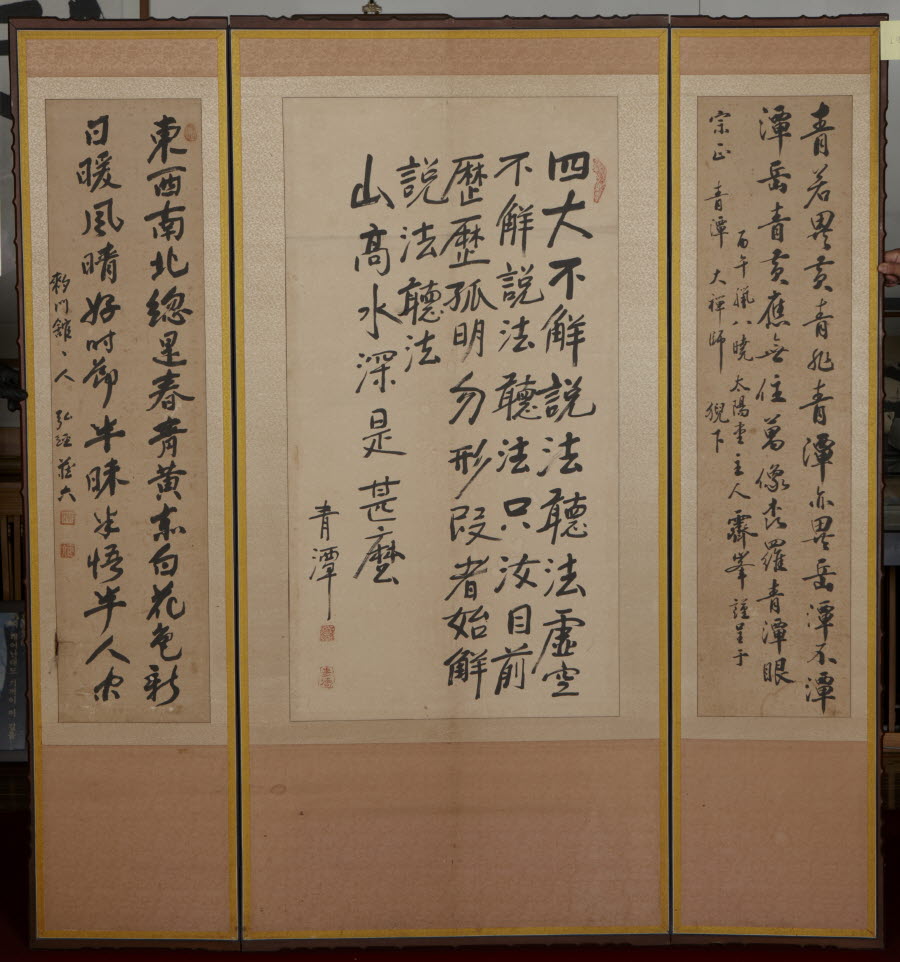 青若異黃青非青潭亦異岳潭不潭
潭岳青黃應無住萬像森羅青潭眼
丙午臘八曉 太陽堂主人 霽峯 謹呈于
宗正 青潭 大禪師 猊下
四大不解說法聽法虛空
不解說法聽法只汝目前
歷歷孤明勿形段者始解
說法聽法
山高水深是甚麼
青潭
東西南北總是春青黃赤白花色新
日暖風晴好時節半昧半悟半人